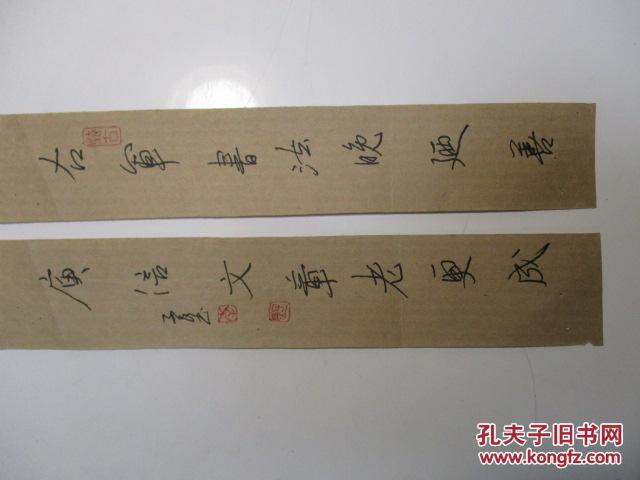 右軍書法晚廼善
庾信文章老更成
孔夫子旧书网
www.kongfz.com